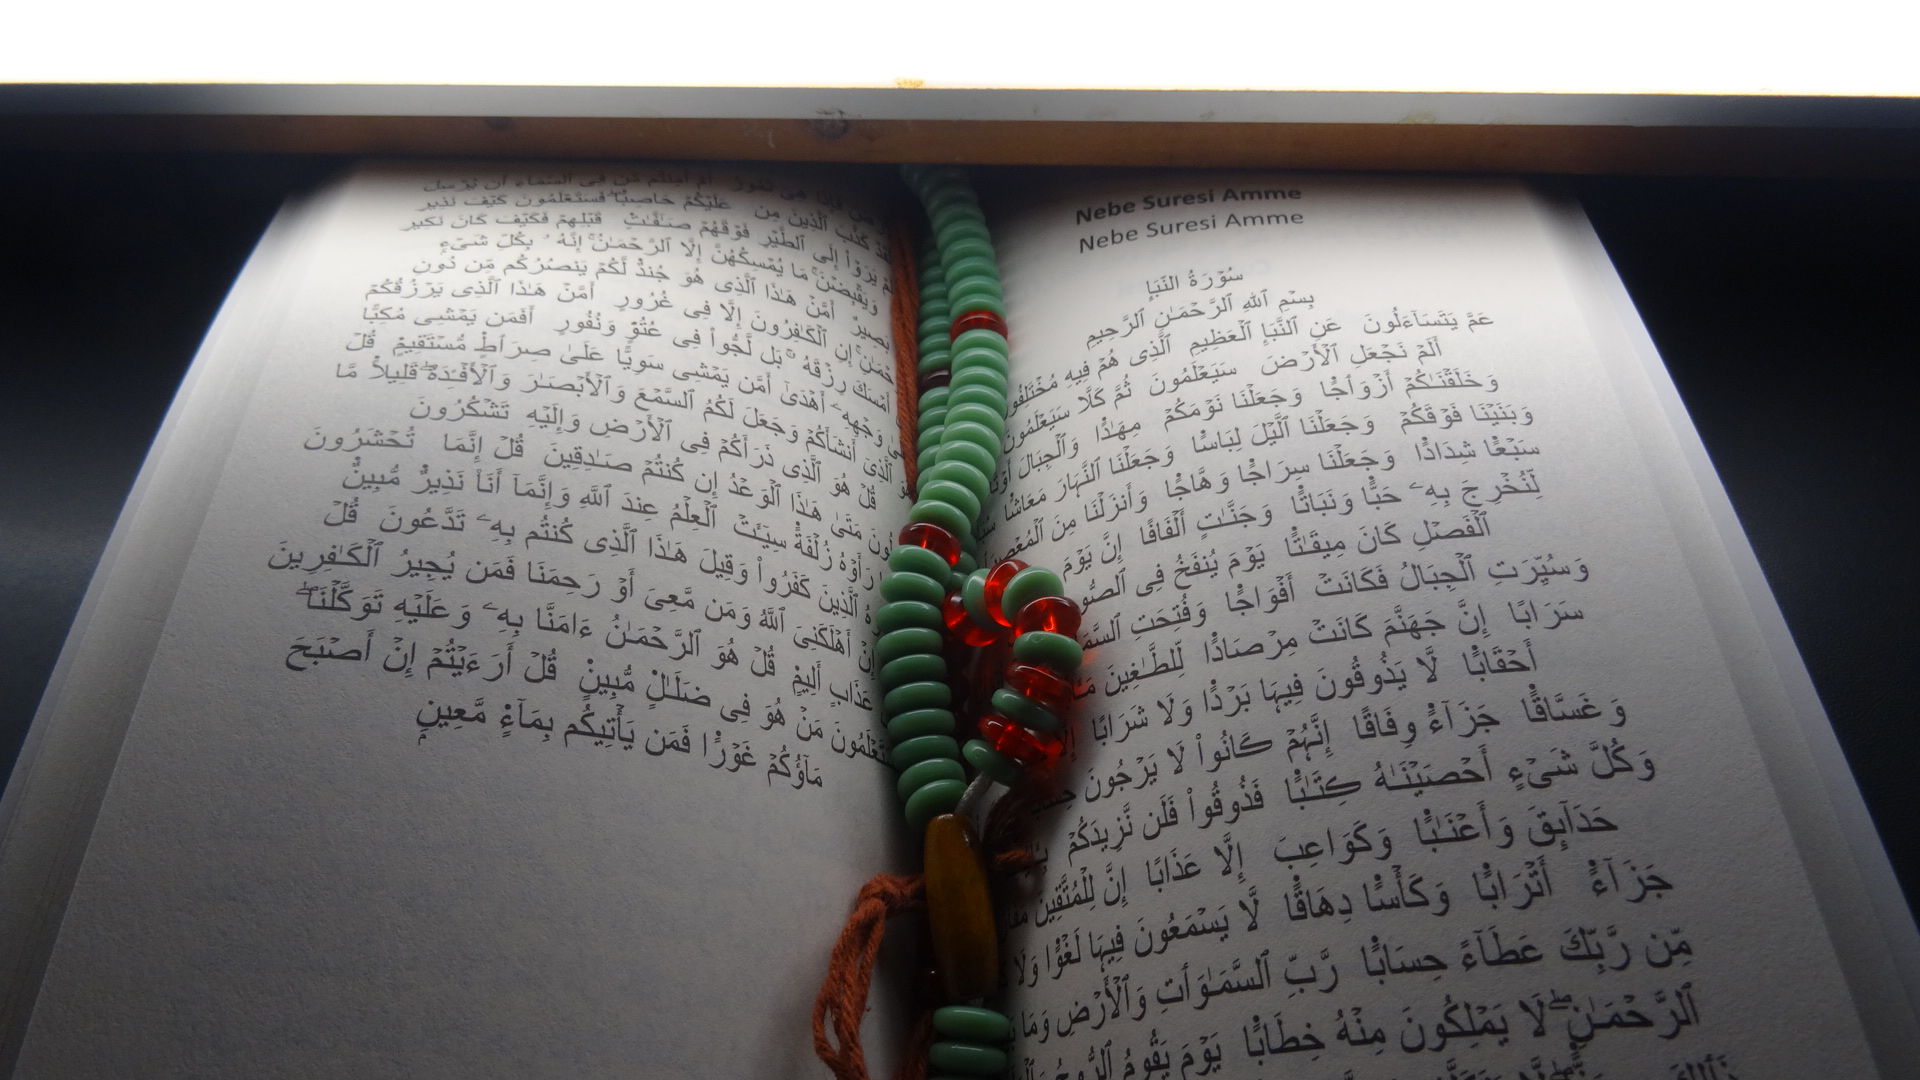 فَإِذَا هِىَ تَمُورُ أَمْ أَمِنتُم مَّن فِى ٱلسَّمَآءِ أَن يُرْسِلَ
كَذَّبَ ٱلَّذِينَ مِن عَلَيْكُمْ حَاصِبًا ۖ فَسَتَعْلَمُونَ كَيْفَ نَذِيرِ
يَرَوْا۟ إِلَى ٱلطَّيْرِ فَوْقَهُمْ صَـٰٓفَّـٰتٍ قَبْلِهِمْ فَكَيْفَ كَانَ نَكِيرِ
وَيَقْبِضْنَ ۚ مَا يُمْسِكُهُنَّ إِلَّا ٱلرَّحْمَـٰنُ ۚ إِنَّهُۥ بِكُلِّ شَىْءٍ
بَصِيرٌ أَمَّنْ هَـٰذَا ٱلَّذِى هُوَ جُندٌ لَّكُمْ يَنصُرُكُم مِّن دُونِ
إِنِ ٱلْكَـٰفِرُونَ إِلَّا فِى غُرُورٍ أَمَّنْ هَـٰذَا ٱلَّذِى يَرْزُقُكُمْ
أَمْسَكَ رِزْقَهُۥ ۚ بَل لَّجُّوا۟ فِى عُتُوٍّ وَنُفُورٍ أَفَمَن يَمْشِى مُكِبًّا
وَجْهِهِۦٓ أَهْدَىٰٓ أَمَّن يَمْشِى سَوِيًّا عَلَىٰ صِرَٰطٍ مُّسْتَقِيمٍ قُلْ
ٱلَّذِىٓ أَنشَأَكُمْ وَجَعَلَ لَكُمُ ٱلسَّمْعَ وَٱلْأَبْصَـٰرَ وَٱلْأَفْـِٔدَةَ ۖ قَلِيلًا مَّا
قُلْ هُوَ ٱلَّذِى ذَرَأَكُمْ فِى ٱلْأَرْضِ وَإِلَيْهِ تَشْكُرُونَ
مَتَىٰ هَـٰذَا ٱلْوَعْدُ إِن كُنتُمْ صَـٰدِقِينَ قُلْ إِنَّمَا تُحْشَرُونَ
رَأَوْهُ زُلْفَةً سِيٓـَٔتْ ٱلْعِلْمُ عِندَ ٱللَّهِ وَإِنَّمَآ أَنَا۠ نَذِيرٌ مُّبِينٌ
ٱلَّذِينَ كَفَرُوا۟ وَقِيلَ هَـٰذَا ٱلَّذِى كُنتُم بِهِۦ تَدَّعُونَ قُلْ
إِنْ أَهْلَكَنِىَ ٱللَّهُ وَمَن مَّعِىَ أَوْ رَحِمَنَا فَمَن يُجِيرُ ٱلْكَـٰفِرِينَ
عَذَابٍ أَلِيمٍ قُلْ هُوَ ٱلرَّحْمَـٰنُ ءَامَنَّا بِهِۦ وَعَلَيْهِ تَوَكَّلْنَا ۖ
مَنْ هُوَ فِى ضَلَـٰلٍ مُّبِينٍ قُلْ أَرَءَيْتُمْ إِنْ أَصْبَحَ
مَآؤُكُمْ غَوْرًا فَمَن يَأْتِيكُم بِمَآءٍ مَّعِينٍ
Nebe Suresi Amme
Nebe Suresi Amme
سُوۡرَةُ النَّبَإِ
بِسْمِ ٱللَّهِ ٱلرَّحْمَـٰنِ ٱلرَّحِيمِ
عَمَّ يَتَسَآءَلُونَ عَنِ ٱلنَّبَإِ ٱلْعَظِيمِ ٱلَّذِى هُمْ فِيهِ مُخْتَلِفُونَ
أَلَمْ نَجْعَلِ ٱلْأَرْضَ سَيَعْلَمُونَ ثُمَّ كَلَّا سَيَعْلَمُونَ
وَخَلَقْنَـٰكُمْ أَزْوَٰجًا وَجَعَلْنَا نَوْمَكُمْ مِهَـٰدًا وَٱلْجِبَالَ
وَبَنَيْنَا فَوْقَكُمْ وَجَعَلْنَا ٱلَّيْلَ لِبَاسًا وَجَعَلْنَا ٱلنَّهَارَ مَعَاشًا
سَبْعًا شِدَادًا وَجَعَلْنَا سِرَاجًا وَهَّاجًا وَأَنزَلْنَا مِنَ
لِّنُخْرِجَ بِهِۦ حَبًّا وَنَبَاتًا وَجَنَّـٰتٍ أَلْفَافًا إِنَّ يَوْمَ
ٱلْفَصْلِ كَانَ مِيقَـٰتًا يَوْمَ يُنفَخُ فِى
وَسُيِّرَتِ ٱلْجِبَالُ فَكَانَتْ أَفْوَاجًا وَفُتِحَتِ
سَرَابًا إِنَّ جَهَنَّمَ كَانَتْ مِرْصَادًا لِّلطَّـٰغِينَ
أَحْقَابًا لَّا يَذُوقُونَ فِيهَا بَرْدًا وَلَا شَرَابًا
وَغَسَّاقًا جَزَآءً وِفَاقًا إِنَّهُمْ كَانُوا۟ لَا يَرْجُونَ
وَكُلَّ شَىْءٍ أَحْصَيْنَـٰهُ كِتَـٰبًا فَذُوقُوا۟ فَلَن نَّزِيدَكُمْ
حَدَآئِقَ وَأَعْنَـٰبًا وَكَوَاعِبَ إِلَّا عَذَابًا إِنَّ لِلْمُتَّقِينَ
جَزَآءً أَتْرَابًا وَكَأْسًا دِهَاقًا لَّا يَسْمَعُونَ فِيهَا لَغْوًا وَلَا
مِّن رَّبِّكَ عَطَآءً حِسَابًا رَّبِّ ٱلسَّمَـٰوَٰتِ وَٱلْأَرْضِ وَمَا
ٱلرَّحْمَـٰنِ ۖ لَا يَمْلِكُونَ مِنْهُ خِطَابًا يَوْمَ يَقُومُ ٱلرُّوحُ